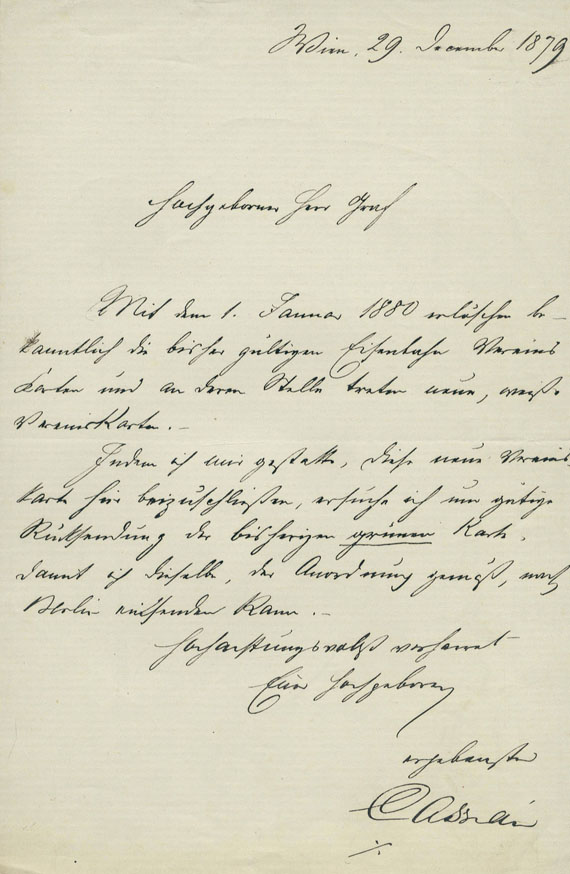 Wien, 29. December 1879
Hochgeborner Herr Graf
Mit dem 1. Januar 1880 erlöschen be-
kanntlich die bisher gültigen Eisenbahn Vereins
Karten und an deren Stelle treten neue, weiße
Vereinskarten. –
Indem ich mir gestatte, diese neue Vereins
karte hier beizuschließen, ersuche ich um gütige
Rücksendung der bisherigen grünen Karte,
damit ich dieselbe, der Anordnung gemäß, nach
Berlin einsenden kann. –
Hochachtungsvollst verharret
Euer Hochgeboren
ergebenster